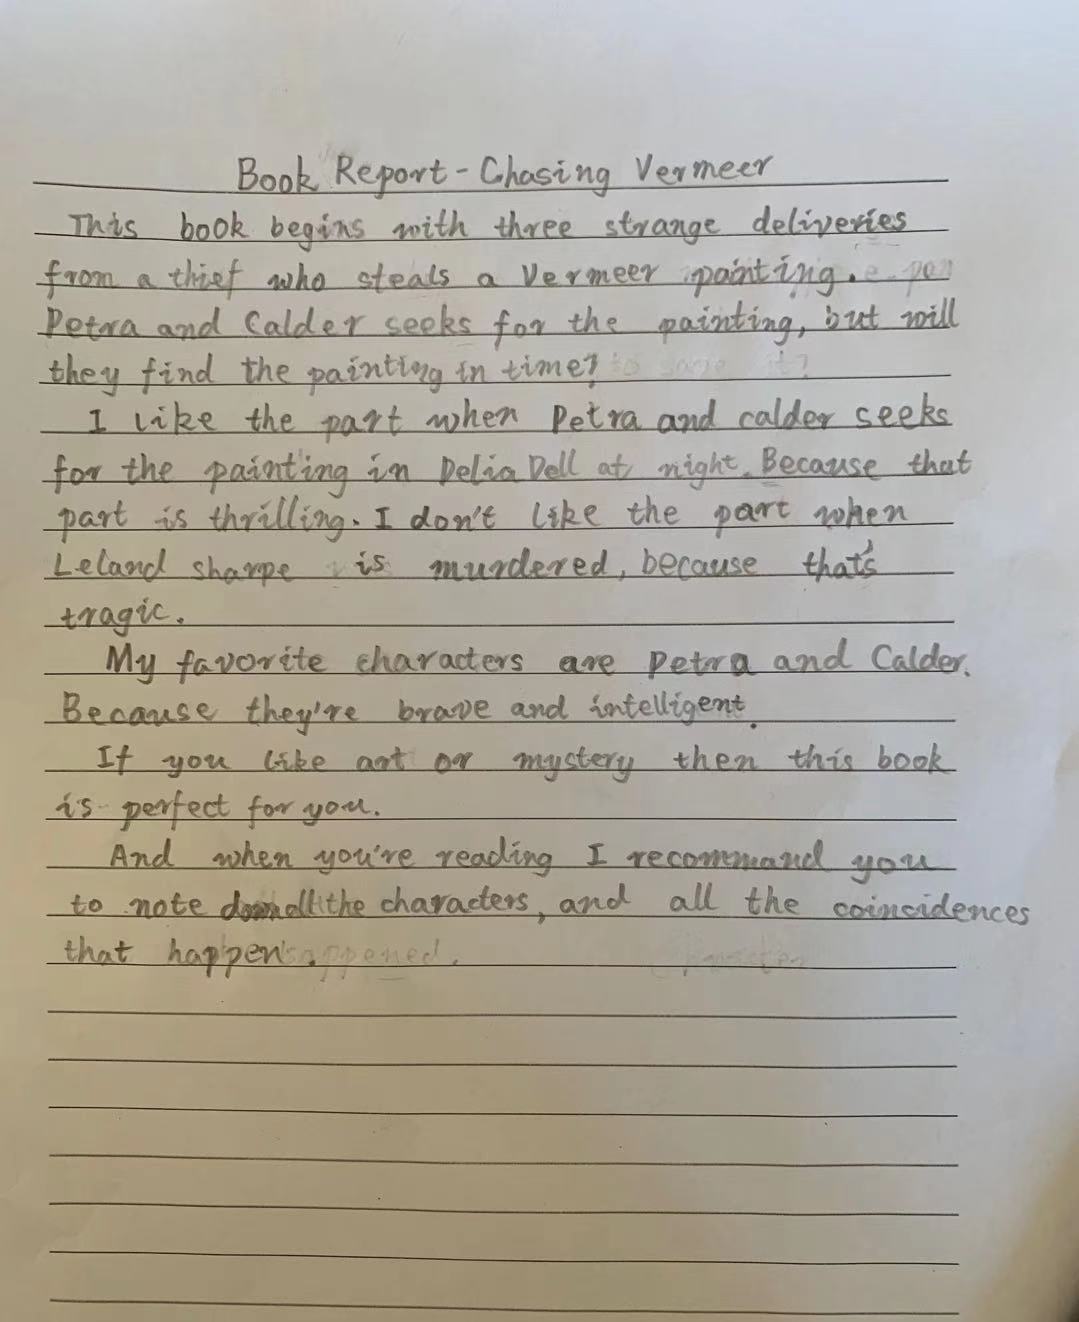 Book Report - Chasing Vermeer
This book begins with three strange deliveries
from a thief who steals a Vermeer painting.
Petra and Calder seeks for the painting, but will
they find the painting in time?
I like the part when Petra and calder seeks
for the painting in Delia Dell at night. Because that
part is thrilling. I don't like the part when
Leland sharpe is murdered, because that's
tragic.
My favorite characters are Petra and Calder.
Because they're brave and intelligent.
If you like art or mystery then this book
is perfect for you.
And when you're reading I recommand you
to note down all the characters, and all the coincidences
that happen.